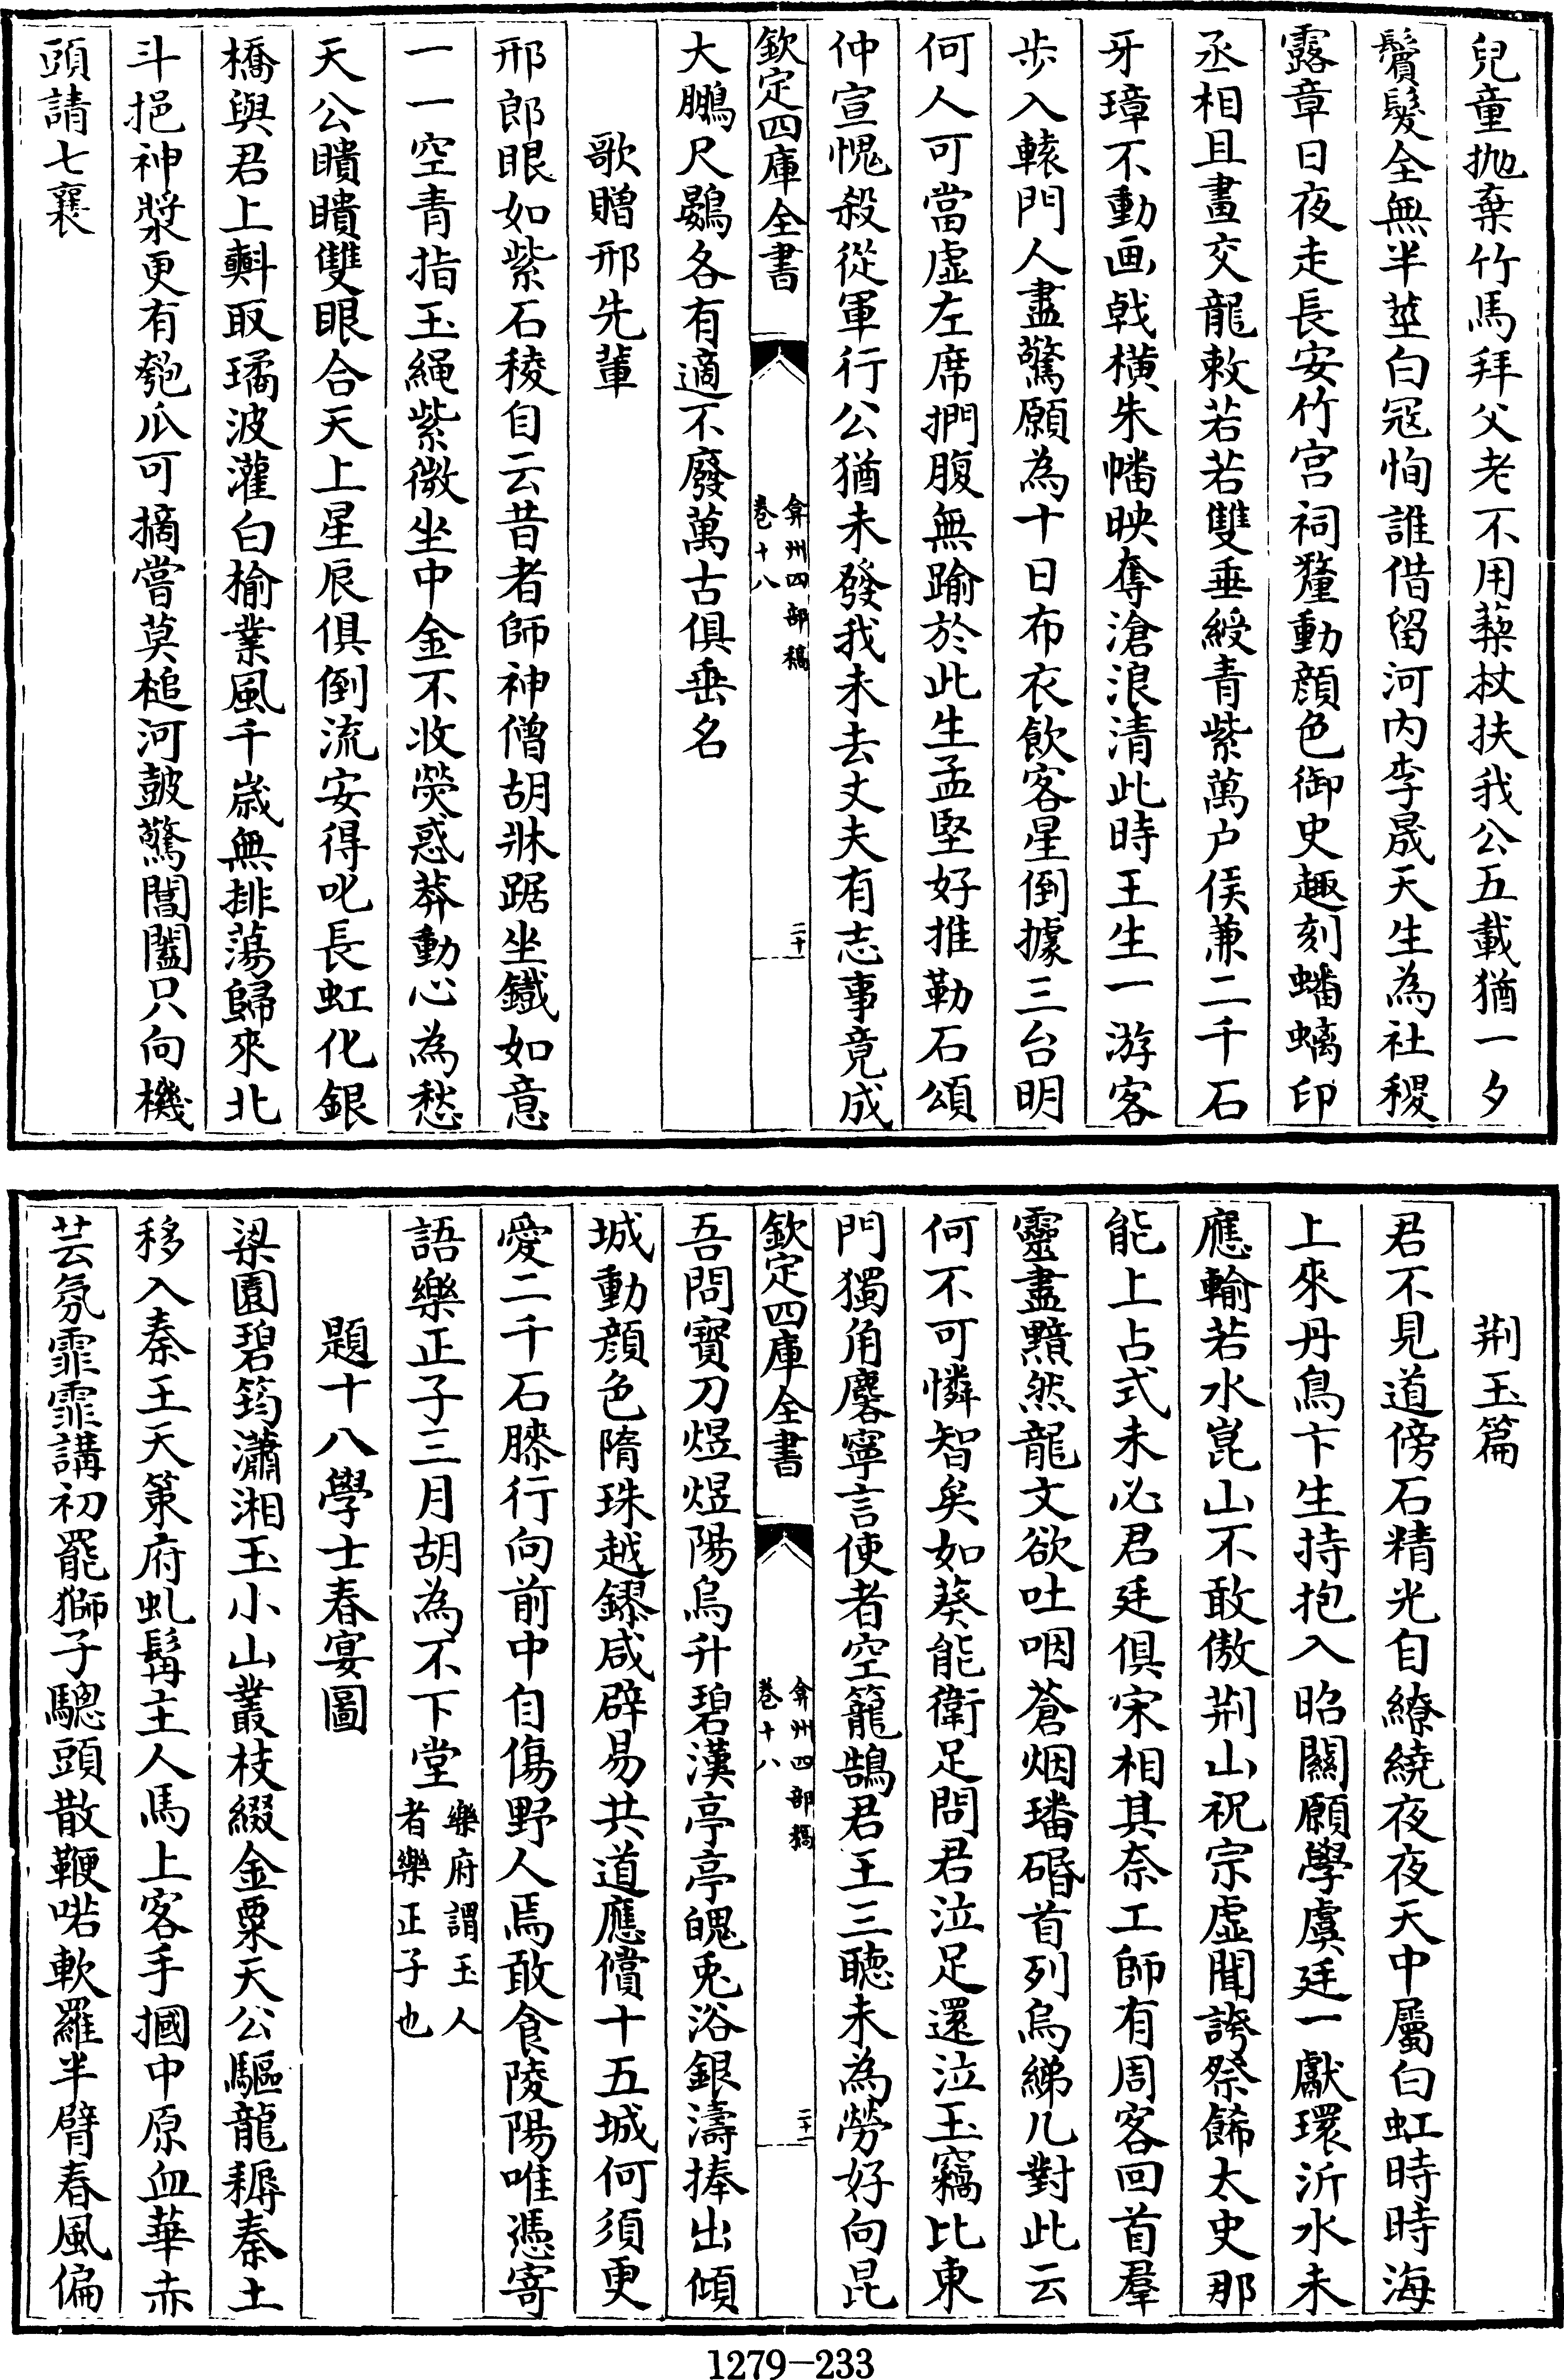 兒童抛棄竹馬拜父老不用藜杖扶我公五載猶一夕
鬢髮全無半莖白冦恂誰借留河内李晟天生為社稷
露章日夜走長安竹宫祠釐動顔色御史趣刻蟠螭印
丞相且畫交龍敕若若雙垂綬青紫萬户侯兼二千石
牙璋不動画戟横朱幡映奪滄浪清此時王生一游客
歩入轅門人盡驚願為十日布衣飲客星倒據三台明
何人可當虛左席捫腹無踰於此生孟堅好推勒石頌
仲宣愧殺從軍行公猶未發我未去丈夫有志事竟成
欽定四庫全書
弇州四部稿
卷十八
二十
大鵬尺鷃各有適不廢萬古俱垂名
歌贈邢先輩
邢郎眼如紫石稜自云昔者師神僧胡牀踞坐鐵如意
一一空青指玉繩紫微坐中金不收熒惑莽動心為愁
天公瞶瞶雙眼合天上星辰俱倒流安得叱長虹化銀
橋與君上㪺取璚波灌白榆業風千歲無排蕩歸來北
斗挹神漿更有匏瓜可摘嘗莫槌河鼓驚閶闔只向機
頭請七襄
荆玉篇
君不見道傍石精光自繚繞夜夜天中屬白虹時時海
上來丹鳥卞生持抱入昭關願學虞廷一獻環沂水未
應輸若水崑山不敢傲荆山祝宗虛聞誇祭餙太史那
能上占式未必君廷俱宋相其奈工師有周客回首羣
靈盡黯然龍文欲吐咽蒼烟璠磻首列烏綈几對此云
何不可憐智矣如葵能衛足問君泣足還泣玉竊比東
門獨角麐寧言使者空籠鵠君王三聽未為勞好向昆
欽定四庫全書
弇州四部稿
卷十八
二十一
吾問寳刀煜煜陽烏升碧漢亭亭魄兎浴銀濤捧出傾
城動顔色隋珠越鏐咸辟易共道應償十五城何須更
愛二千石膝行向前中自傷野人焉敢食陵陽唯憑寄
語樂正子三月胡為不下堂樂府謂玉人
者樂正子也
題十八學士春宴圖
梁園碧筠瀟湘玉小山叢枝綴金粟天公驅龍耨秦土
移入秦王天策府虬髯主人馬上客手摑中原血華赤
芸氛霏霏講初罷獅子驄頭散鞭喏軟羅半臂春風偏
1279-233